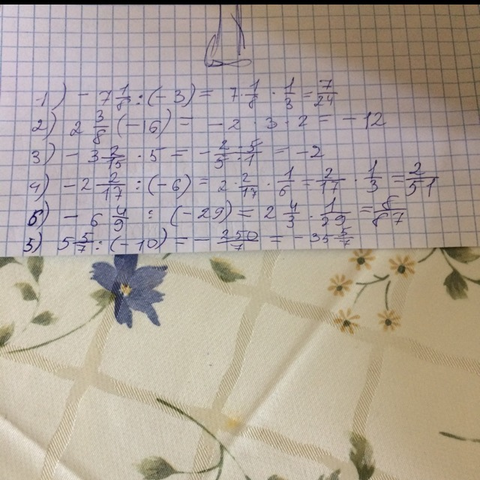 1) - 7 1/8 : (-3) = 7 1/8 · 1/3 = 7/24
2) 2 3/8 (-16) = - 2 · 3 · 2 = - 12
3) - 3 2/15 · 5 = - 2/3 · 5/1 = - 2
4) - 2 2/17 : (-6) = 2 · 2/17 · 1/6 = 2/17 · 1/3 = 2/51
6) - 6 4/9 : (-29) = 2 4/3 · 1/29 = 8/87
5) 5 5/7 : (-10) = - 250/7 = - 35 5/7